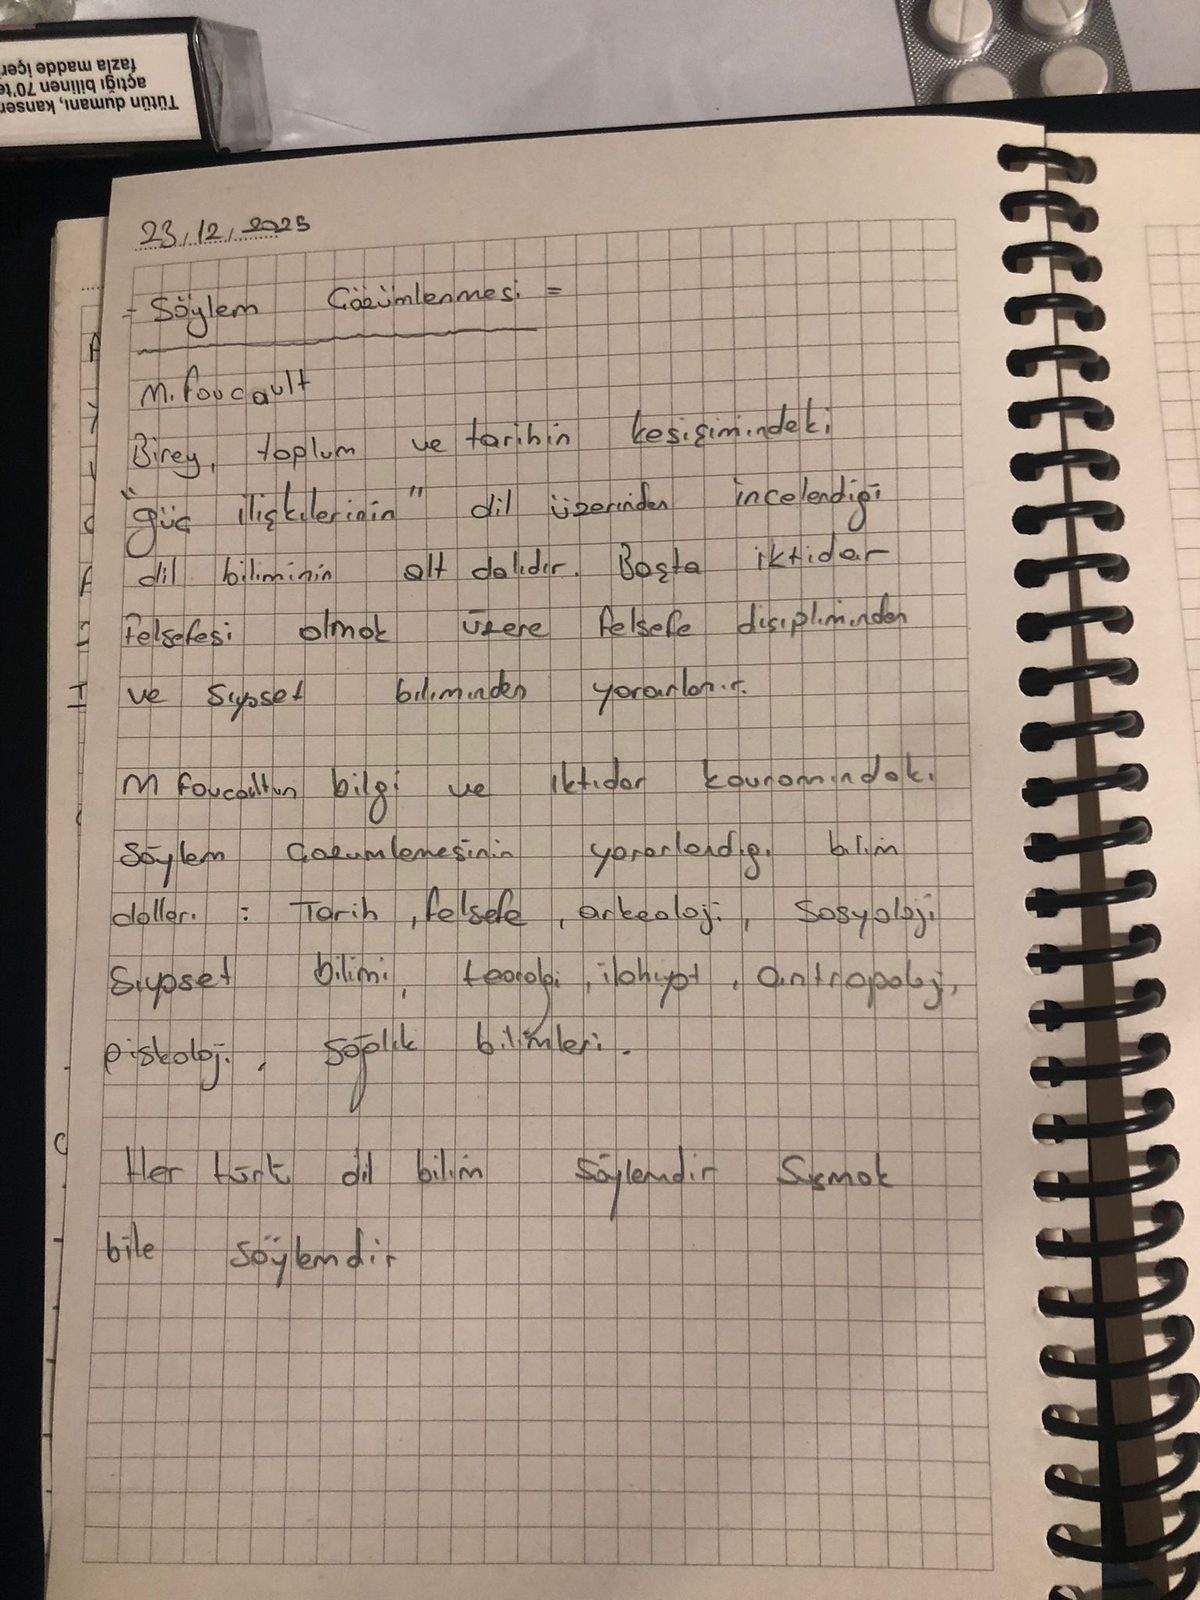 Tütün dumanı, kansere
açtığı bilinen 70'te
fazla madde içer
23.12.2025
- Söylem Çözümlenmesi =
M. Foucault
Birey, toplum ve tarihin kesişimindeki
"güç ilişkilerinin" dil üzerinden incelendiği
dil biliminin alt dalıdır. Başta iktidar
felsefesi olmak üzere felsefe disiplininden
ve siyaset biliminden yararlanır.
M foucaultun bilgi ve iktidar kavramındaki
Söylem Çözümlemesinin yararlandığı bilim
dalları : Tarih, felsefe, arkeoloji, Sosyoloji
Siyaset bilimi, teoloji, ilahiyat, antropoloji,
piskoloji, sağlık bilimleri.
Her türlü dil bilim söylemdir Susmak
bile söylemdir